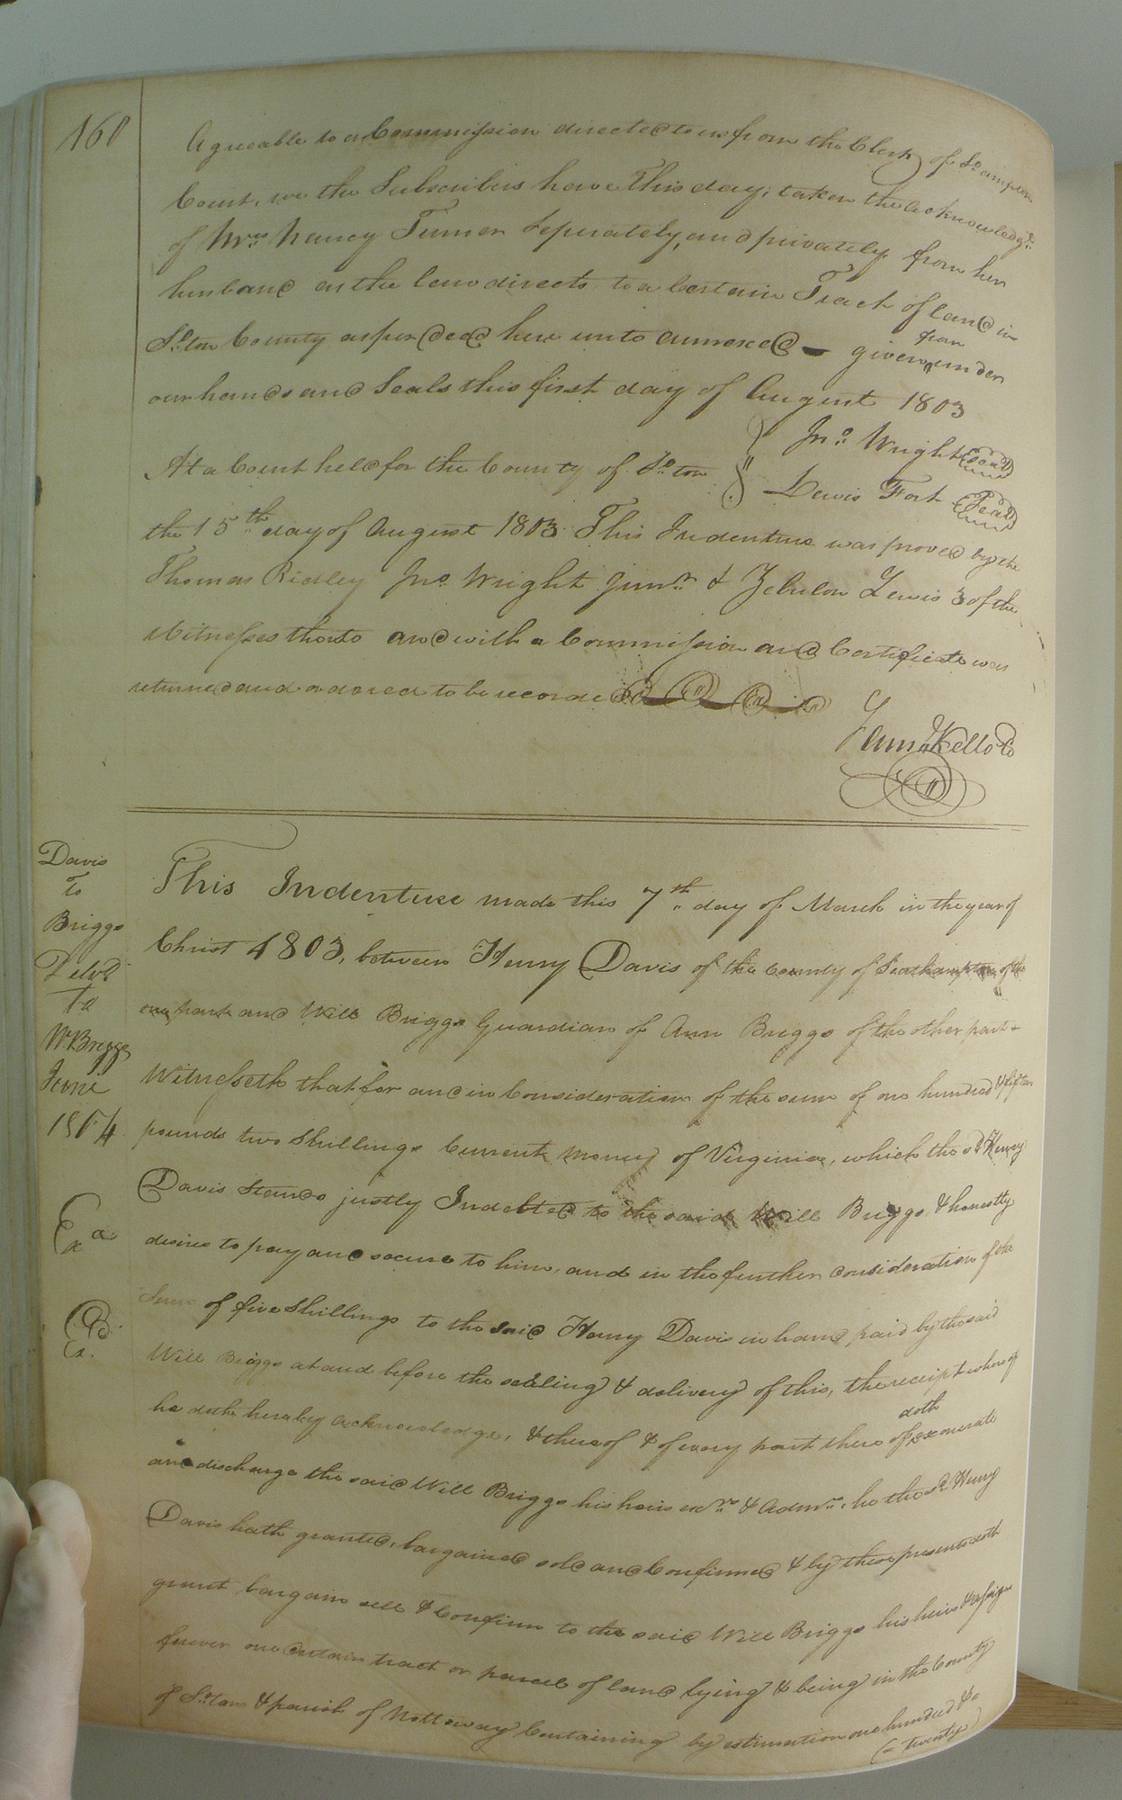 160
Agreeable to a Commission directed to us from the Clerk of So.ampton
Court, we the Subscribers have This day, taken the acknowledgt.
of Mrs. Nancy Turner Seperately, and privately from her
husband as the law directs to a Certain Tract of land in
So.ton County as per deed here unto annexed — given under
our hands and Seals this first day of August 1803
Jno. Wright (Seal)
Lewis Fort (Seal)
At a Court held for the County of So.ton
the 15th day of August 1803 This Indenture was proved by the
Thomas Ridley Jno. Wright Junr. & Zebulon Lewis 3 of the
witnesses thereto and with a Commission and Certificate was
returned and ordered to be recorded
Saml. Kello Co
Davis
To
Briggs
Delvd.
To
W Briggs
June
1804
Exa
Exd.
This Indenture made this 7th day of March in the year of
Christ 1803, between Henry Davis of the County of Southampton of the
one part and Will Briggs Guardian of Ann Briggs of the other part
Witnesseth that for and in Consideration of the sum of one hundred & fifteen
pounds two Shillings Current money of Virginia, which the sd. Henry
Davis Stands justly Indebted to the said Will Briggs & honestly
desires to pay and secure to him, and in the further consideration of the
Sum of five Shillings to the said Henry Davis in hand paid by the said
Will Briggs at and before the sealing & delivery of this, the receipt whereof
he doth hereby acknowledge, & thereof & of every part there of doth exonerate
and discharge the said Will Briggs his heirs exrs. & Admrs. he the sd. Henry
Davis hath granted, bargained sold and Confirmed & by these presents doth
grant bargain sell & Confirm to the said Will Briggs his heirs & assigns
forever one Certain tract or parcel of land lying & being in the County
of So.ton & parish of Nottoway Containing by estimation one hundred &
(twenty)